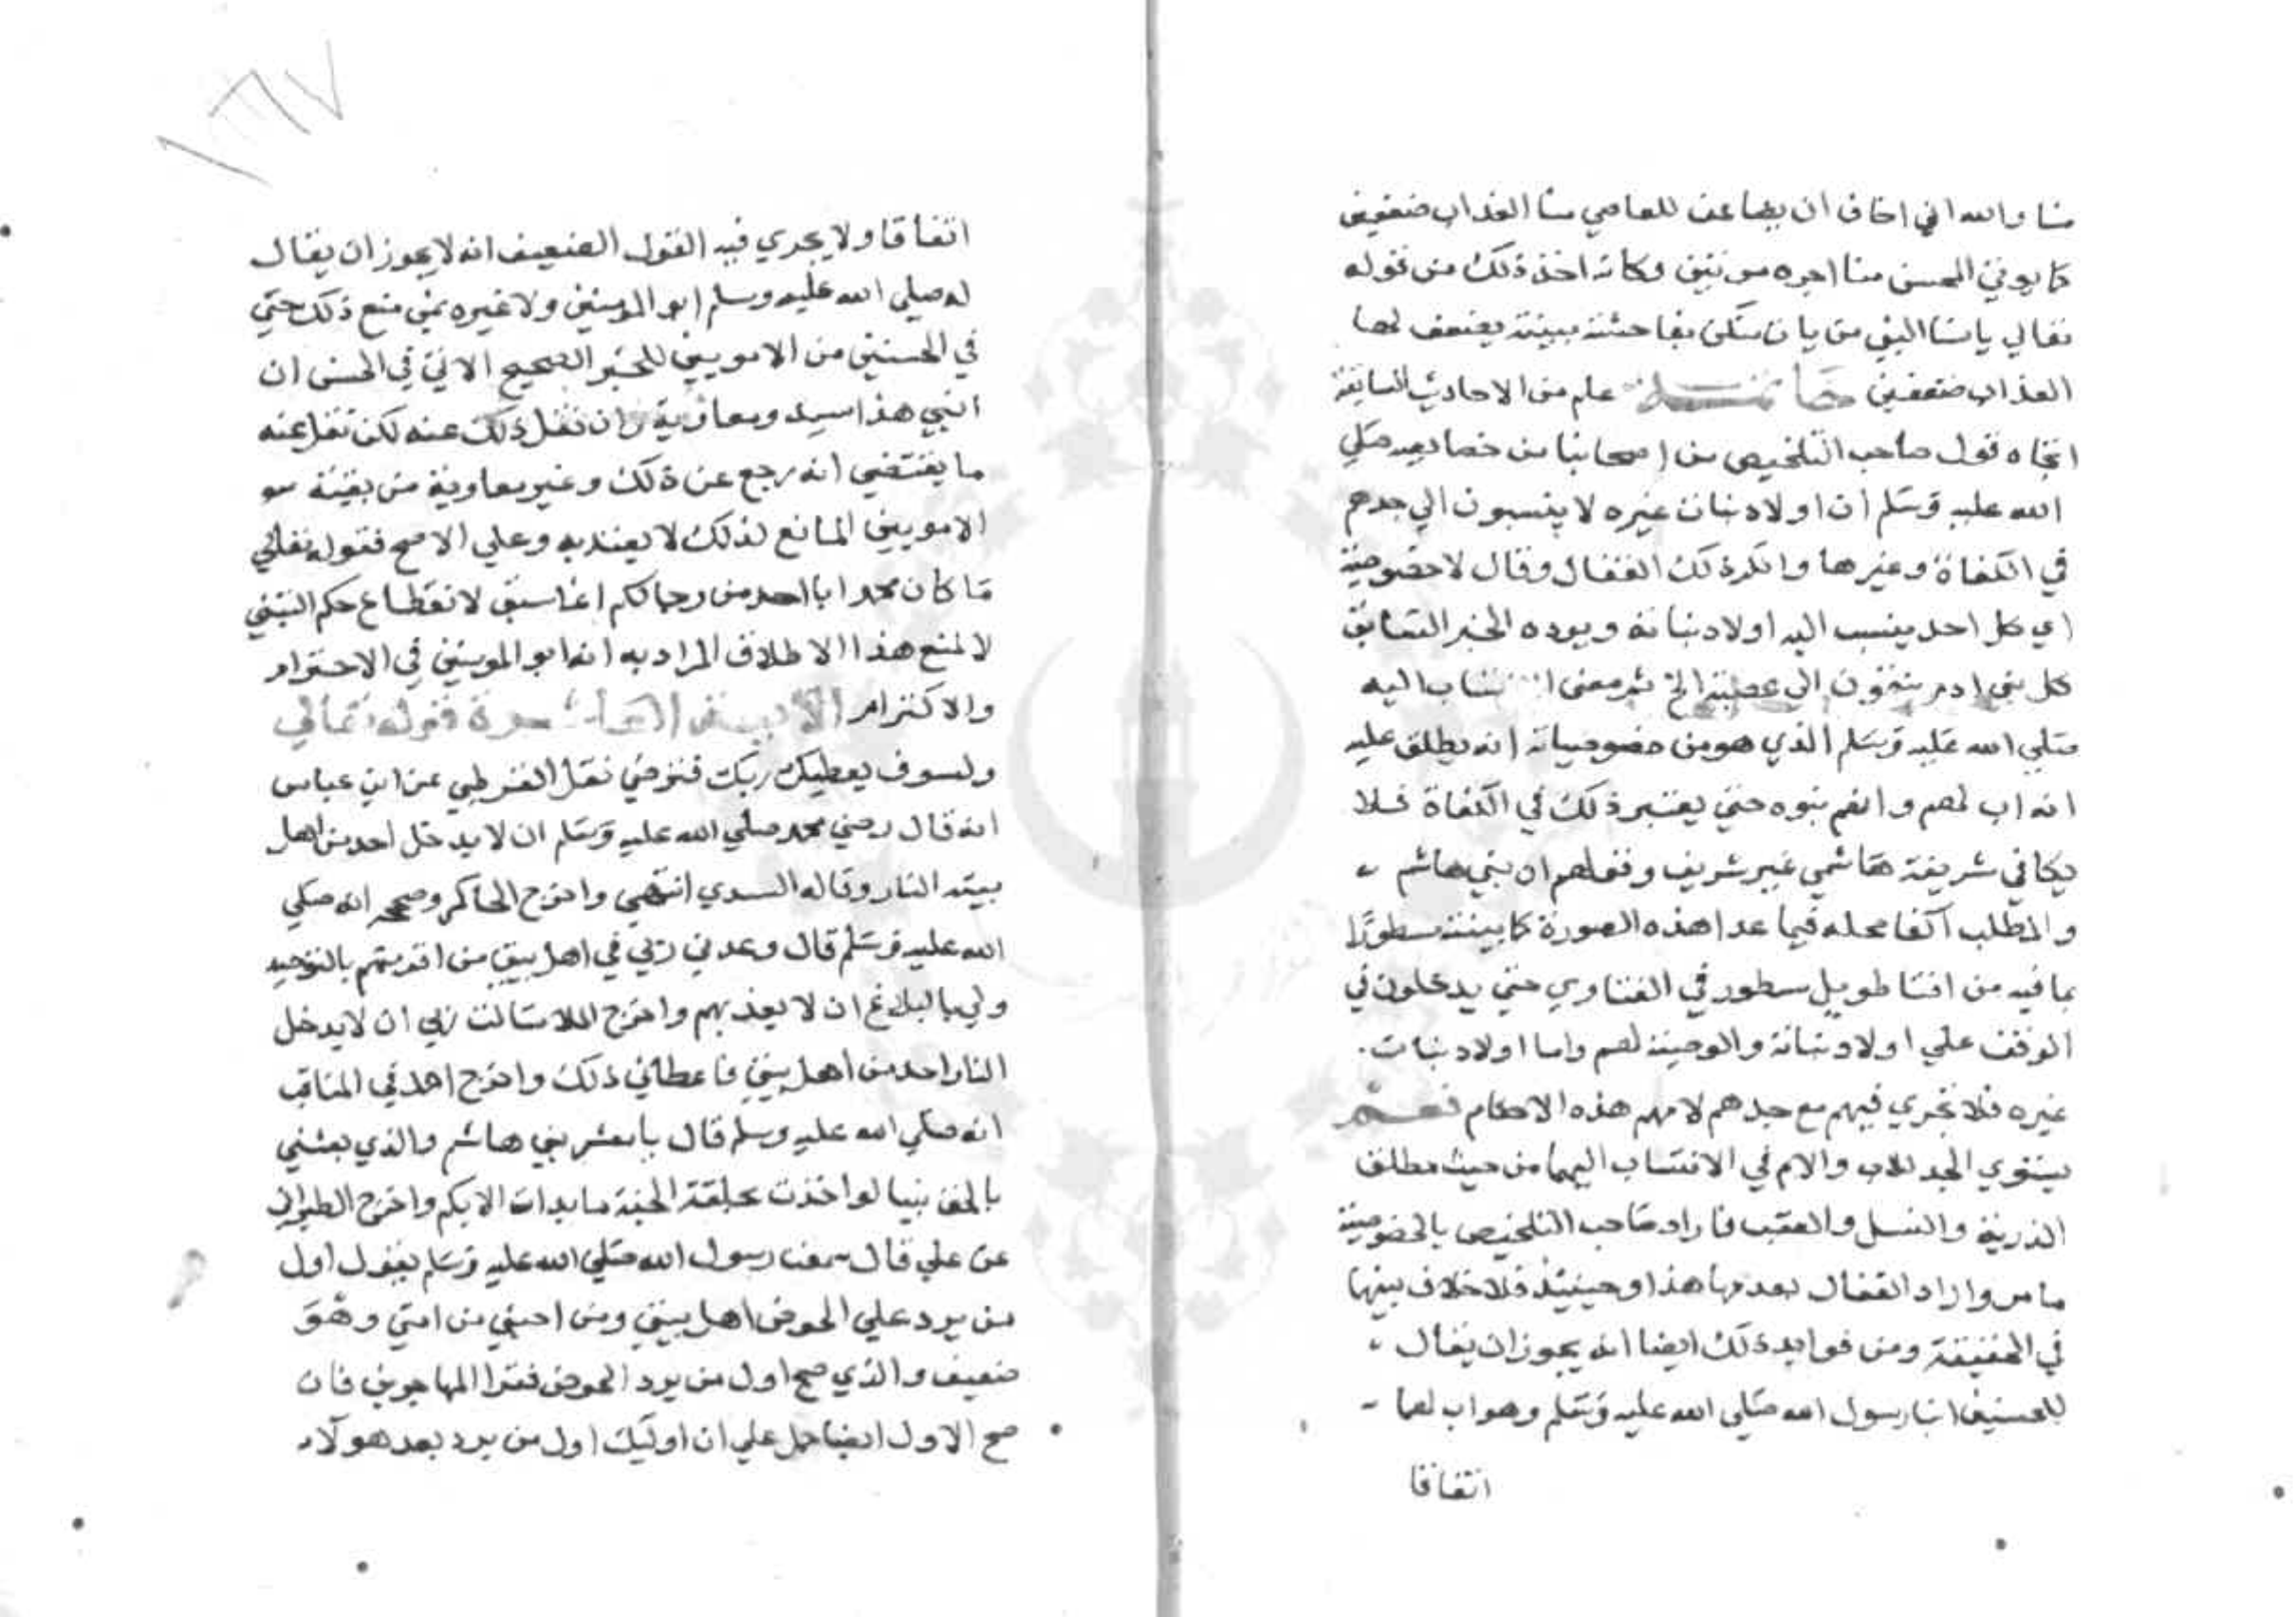 منا والله اني اخاف ان يضاعف للعاصي منا العذاب ضعفين
كما يوتي المحسن منا اجره مرتين وكانه اخذ ذلك من قوله
تعالي يا نسا النبي من يات منكن بفاحشة مبينة يضعف لها
العذاب ضعفين خاتمة علم من الاحاديث السابقة
اتجاه قول صاحب التلخيص من اصحابنا من خصايصه صلي
الله عليه وسلم ان اولاد بناته غيره لا ينسبون الي جدهم
في الكفاة وغيرها وانكر ذلك القفال وقال لا خصوصية
اي كل احد ينسب اليه اولاد بناته ويرده الخبر السابق
كل بني ادم ينتمون الي عصبة الخ ثم معني الانتساب اليه
صلي الله عليه وسلم الذي هو من خصوصياته انه يطلق عليه
انه اب لهم وانهم بنوه حتي يعتبر ذلك في الكفاة فلا
يكافي شريفة هاشمي غير شريف وقولهم ان بني هاشم
والمطلب اكفا محله فيما عدا هذه الصورة كما بينته مسطورا
بما فيه من افتا طويل مسطور في الفتاوي حتي يدخلون في
الوقف علي اولاد بناته والوصية لهم واما اولاد بنات
غيره فلا تجري فيهم مع جدهم لامهم هذه الاحكام نعم
يستوي الجد للاب والام في الانتساب اليهما من حيث مطلق
الذرية والنسل والعقب فاراد صاحب التلخيص بالخصوصية
ما مر واراد القفال بعدمها هذا وحينيذ فلا خلاف بينهما
في الحقيقة ومن فوايد ذلك ايضا انه يجوز ان يقال
للحسنين ابنا رسول الله صلي الله عليه وسلم وهو اب لهما
اتفاقا
١٦٧
اتفاقا ولا يجري فيه القول الضعيف انه لا يجوز ان يقال
له صلي الله عليه وسلم ابو المومنين ولا عبرة بمن منع ذلك حتي
في الحسنين من الامويين للخبر الصحيح الاتي في الحسن ان
ابني هذا سيد ومعاوية وان نقل ذلك عنه لكن نقل عنه
ما يقتضي انه رجع عن ذلك وغير معاوية من بقية
الامويين المانع لذلك لا يعتد به وعلي الاصح فقوله تعالي
ما كان محمد ابا احد من رجالكم انما سيق لانقطاع حكم التبني
لا لمنع هذا الاطلاق المراد به انه ابو المومنين في الاحترام
والاكرام الاية العاشرة قوله تعالي
ولسوف يعطيك ربك فترضي نقل القرطبي عن ابن عباس
انه قال رضي محمد صلي الله عليه وسلم ان لا يدخل احد من اهل
بيته النار وقاله السدي انتهي واخرج الحاكم وصححه انه صلي
الله عليه وسلم قال وعدني ربي في اهل بيتي من اقر منهم بالتوحيد
ولي بالبلاغ ان لا يعذبهم واخرج الملا سالت ربي ان لا يدخل
النار احد من اهل بيتي فاعطاني ذلك واخرج احمد في المناقب
انه صلي الله عليه وسلم قال يا معشر بني هاشم والذي بعثني
بالحق نبيا لو اخذت بحلقة الجنة ما بدات الا بكم واخرج الطبراني
عن علي قال سمعت رسول الله صلي الله عليه وسلم يقول اول
من يرد علي الحوض اهل بيتي ومن احبني من امتي وهو
ضعيف والذي صح اول من يرد الحوض فقرا المهاجرين فان
صح الاول ايضا حمل علي ان اوليك اول من يرد بعد هولاء